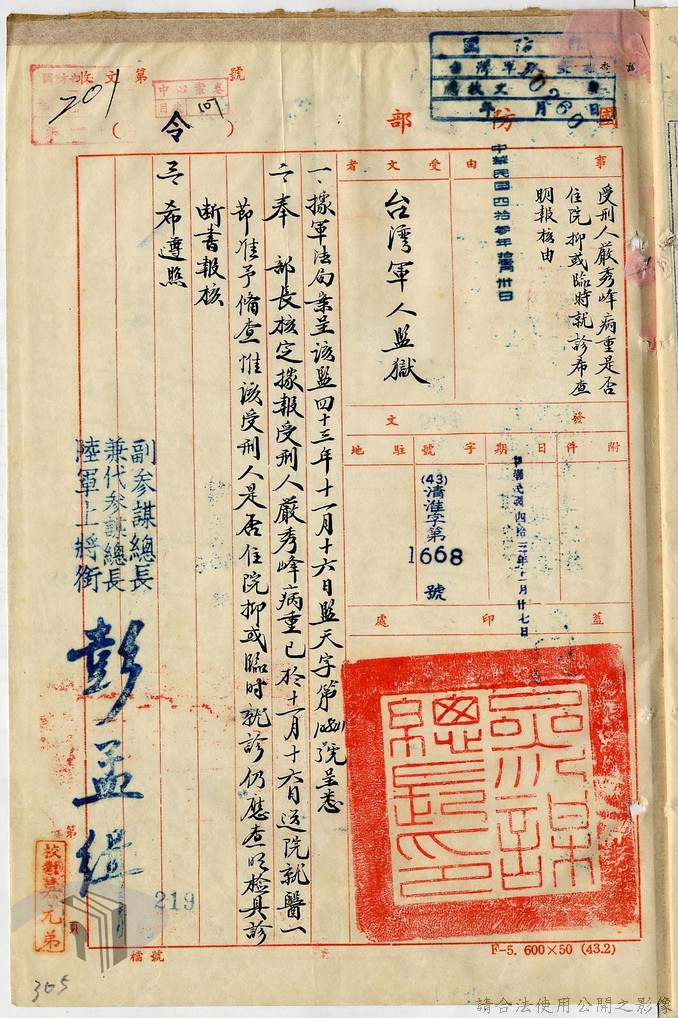 收文第 號
201
中心黨卷
目次 101
國防部
(令)
事由
受刑人嚴秀峰病重是否
住院抑或臨時就診希查
明報核由
受文者
台灣軍人監獄
中華民國四拾參年拾壹月卅日
發文
附件
日期
字號
駐地
中華民國四拾三年十一月廿七日
(43)清淮字第
1668
號
蓋印處
參謀
總長印
一、據軍法局案呈該監四十三年十一月十六日監天字第 號呈悉
二、奉 部長核定據報受刑人嚴秀峰病重已於十一月十六日送院就醫一
節准予備查惟該受刑人是否住院抑或臨時就診仍應查明檢具診
斷書報核
三、希遵照
副參謀總長
兼代參謀總長
陸軍上將銜
彭孟緝
第
219
頁
檔號
F-5. 600×50 (43.2)
305
請合法使用公開之影像